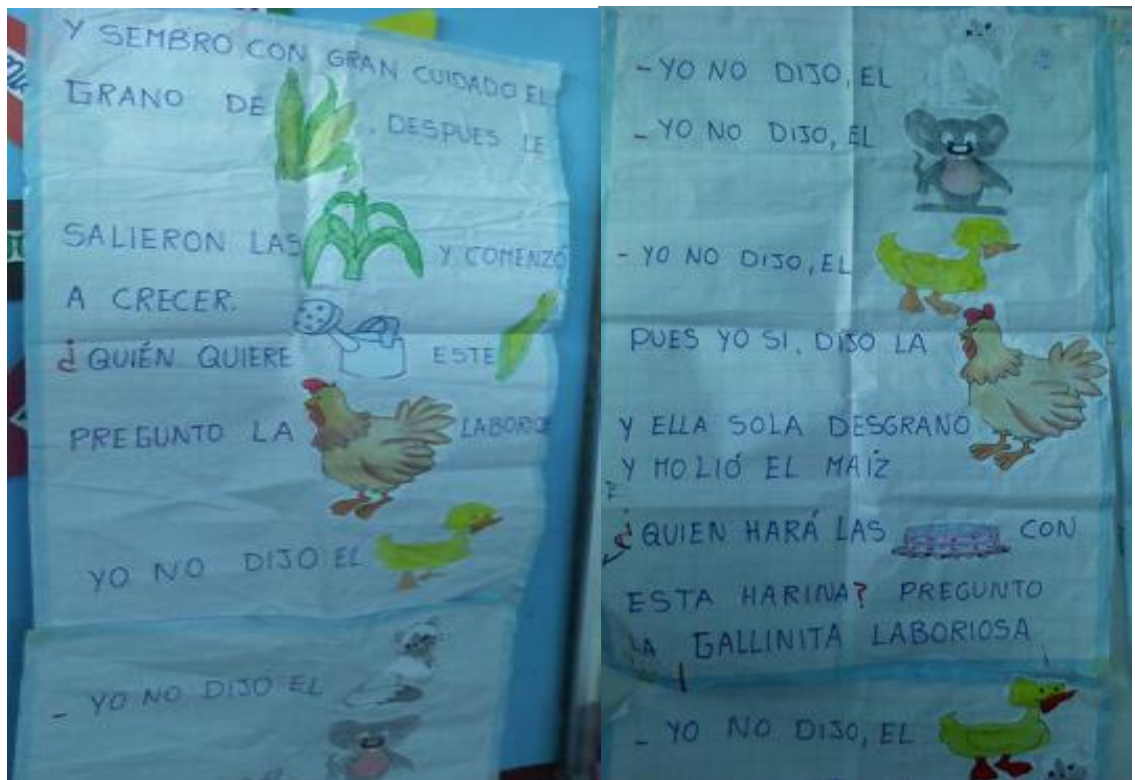 Y SEMBRO CON GRAN CUIDADO EL
GRANO DE . DESPUES LE
SALIERON LAS Y COMENZÓ
A CRECER.
¿QUIÉN QUIERE ESTE
PREGUNTO LA LABORIO
YO NO DIJO EL
- YO NO DIJO EL
- YO NO DIJO, EL
- YO NO DIJO, EL
- YO NO DIJO, EL
PUES YO SI, DIJO LA
Y ELLA SOLA DESGRANO
Y MOLIÓ EL MAÍZ
¿QUIEN HARÁ LAS CON
ESTA HARINA? PREGUNTO
LA GALLINITA LABORIOSA
- YO NO DIJO, EL